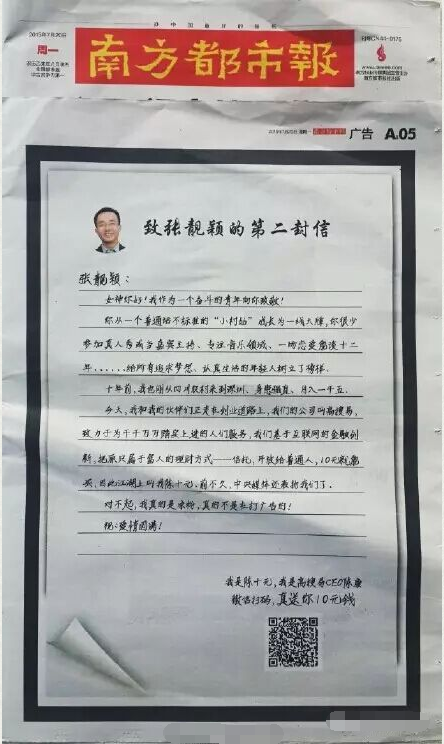 办中国最好的报纸
2015年7月20日
周一
南方都市報
广告 A05
致张靓颖的第二封信
张靓颖：
女神你好！我作为一个奋斗的青年向你致敬！
你从一个普通话不标准的“小村姑”成长为一线大牌，你很少
参加真人秀或当嘉宾主持、专注音乐领域、一场恋爱爱了十二
年......给所有追求梦想、认真生活的年轻人树立了榜样。
十年前，我也刚从四川农村来到深圳、身患、月入一千五。
今天，我和我的伙伴们正走在创业道路上，我们的公司叫高搜易，
致力于为千千万万踏实上进的人们服务，我们基于互联网的金融创
新，把原只属于富人的理财方式——信托，开放给普通人，10元就能
买，因此江湖上叫我陈十元，前不久，中央媒体还表扬我们了。
对不起，我真的是来粉，真的不是来打广告的！
祝：爱情圆满！
我是陈十元，我是高搜易CEO陈康
微信扫码，真送你10元钱